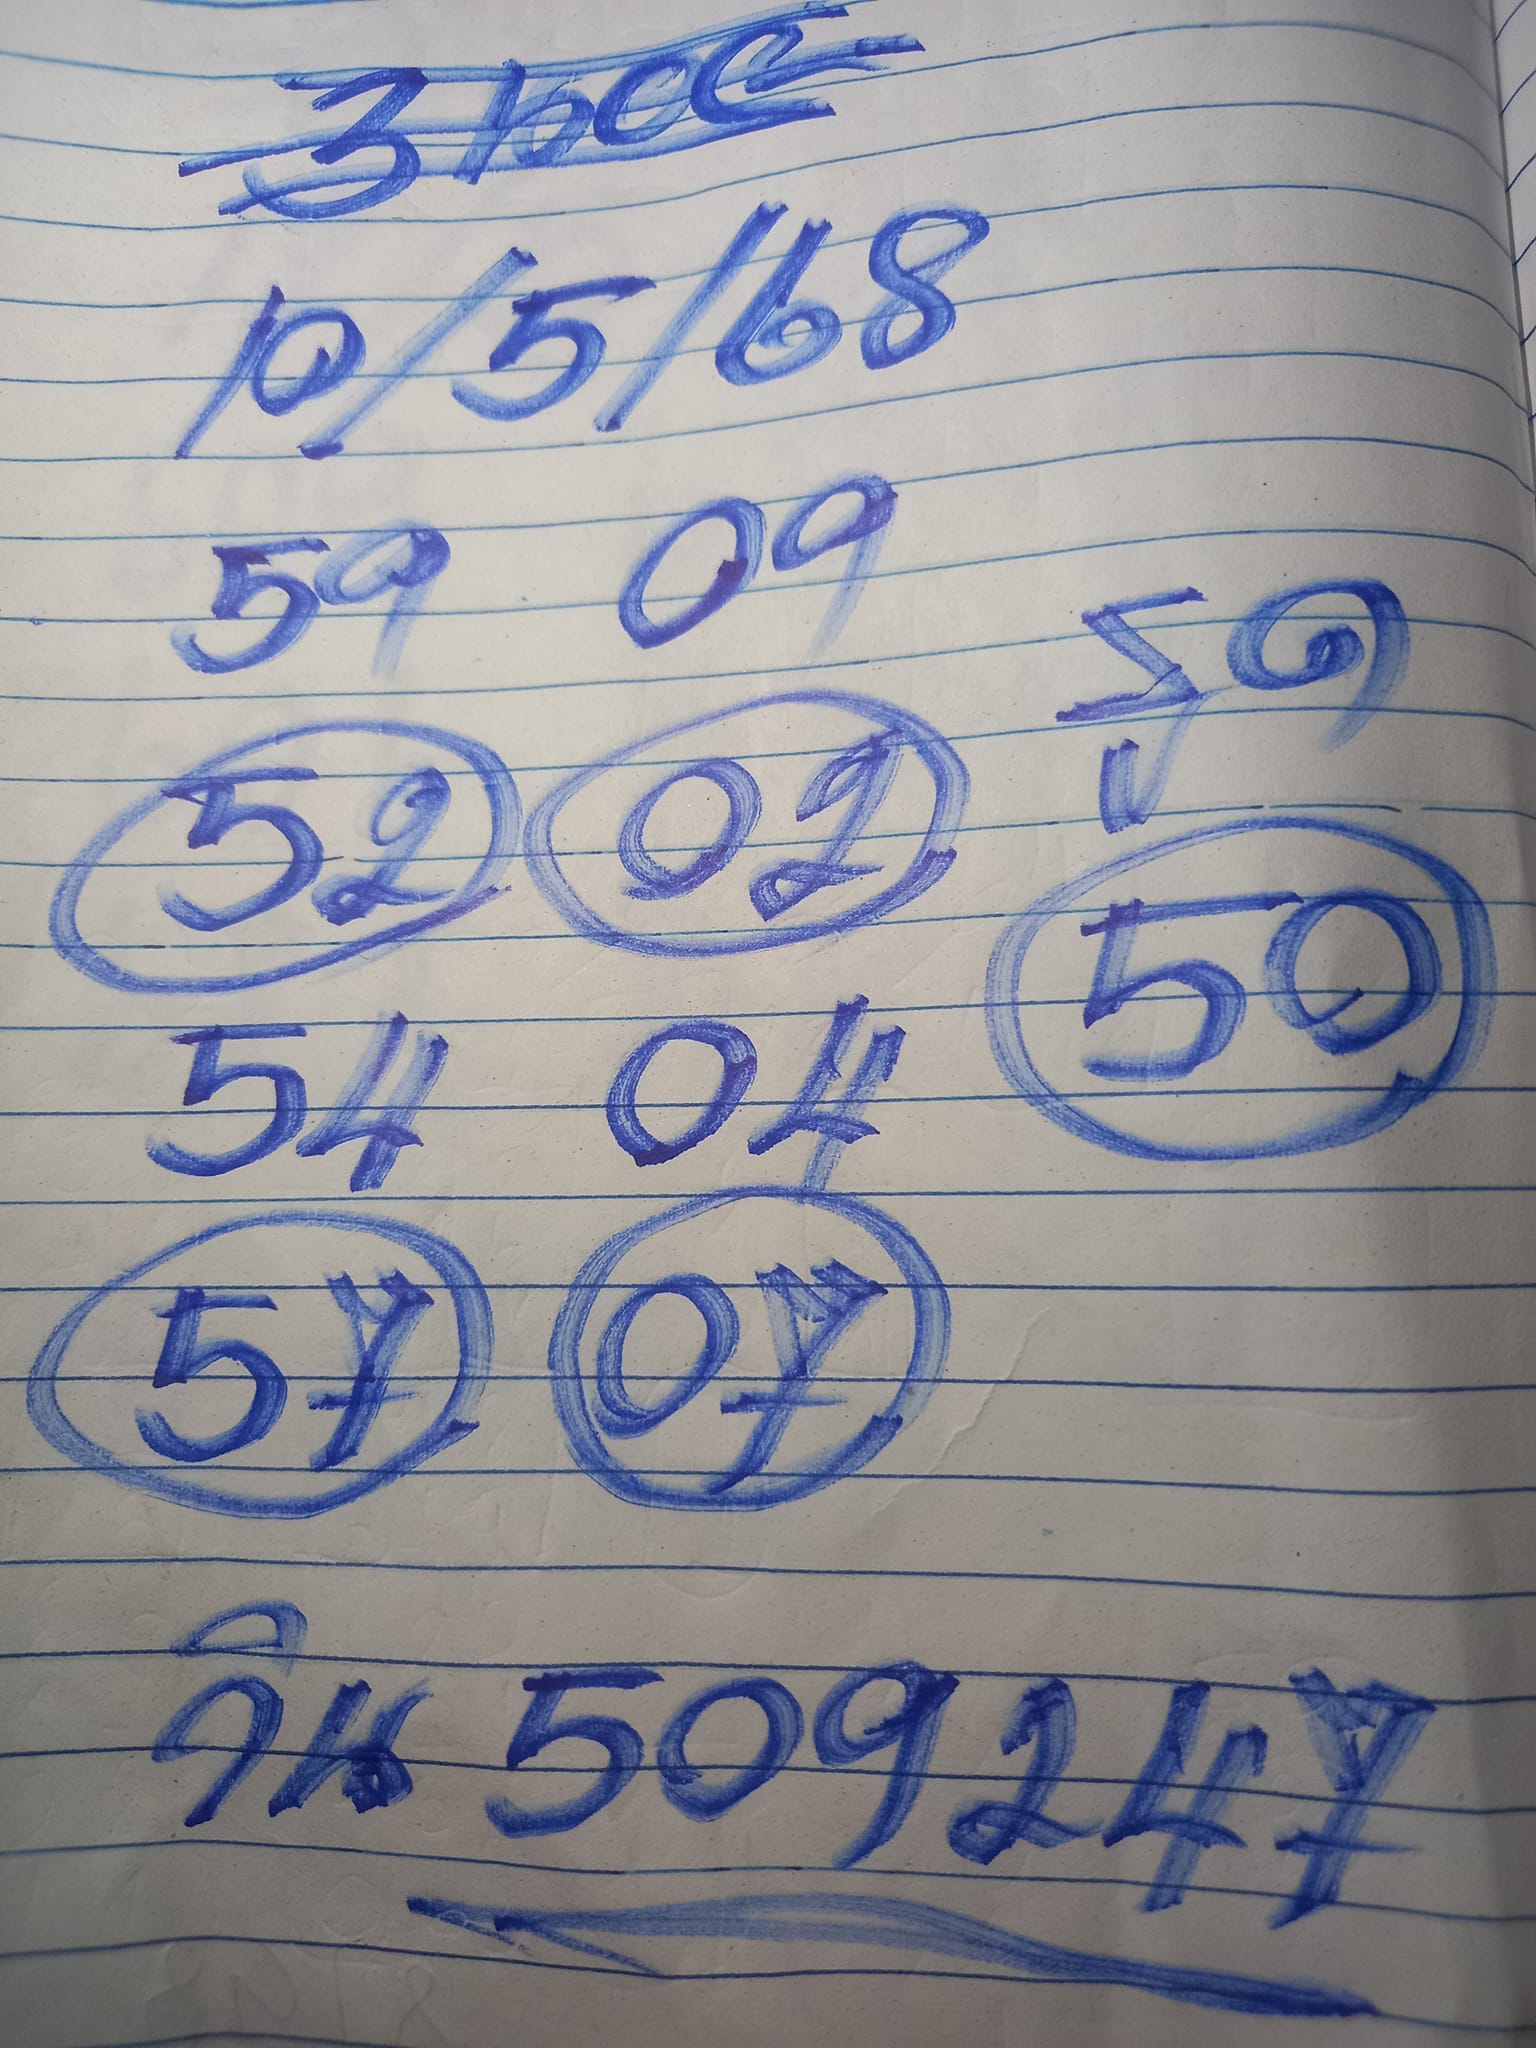 10/5/68
59 09
รูด
52 02
50
54 04
57 07
วิน 509247